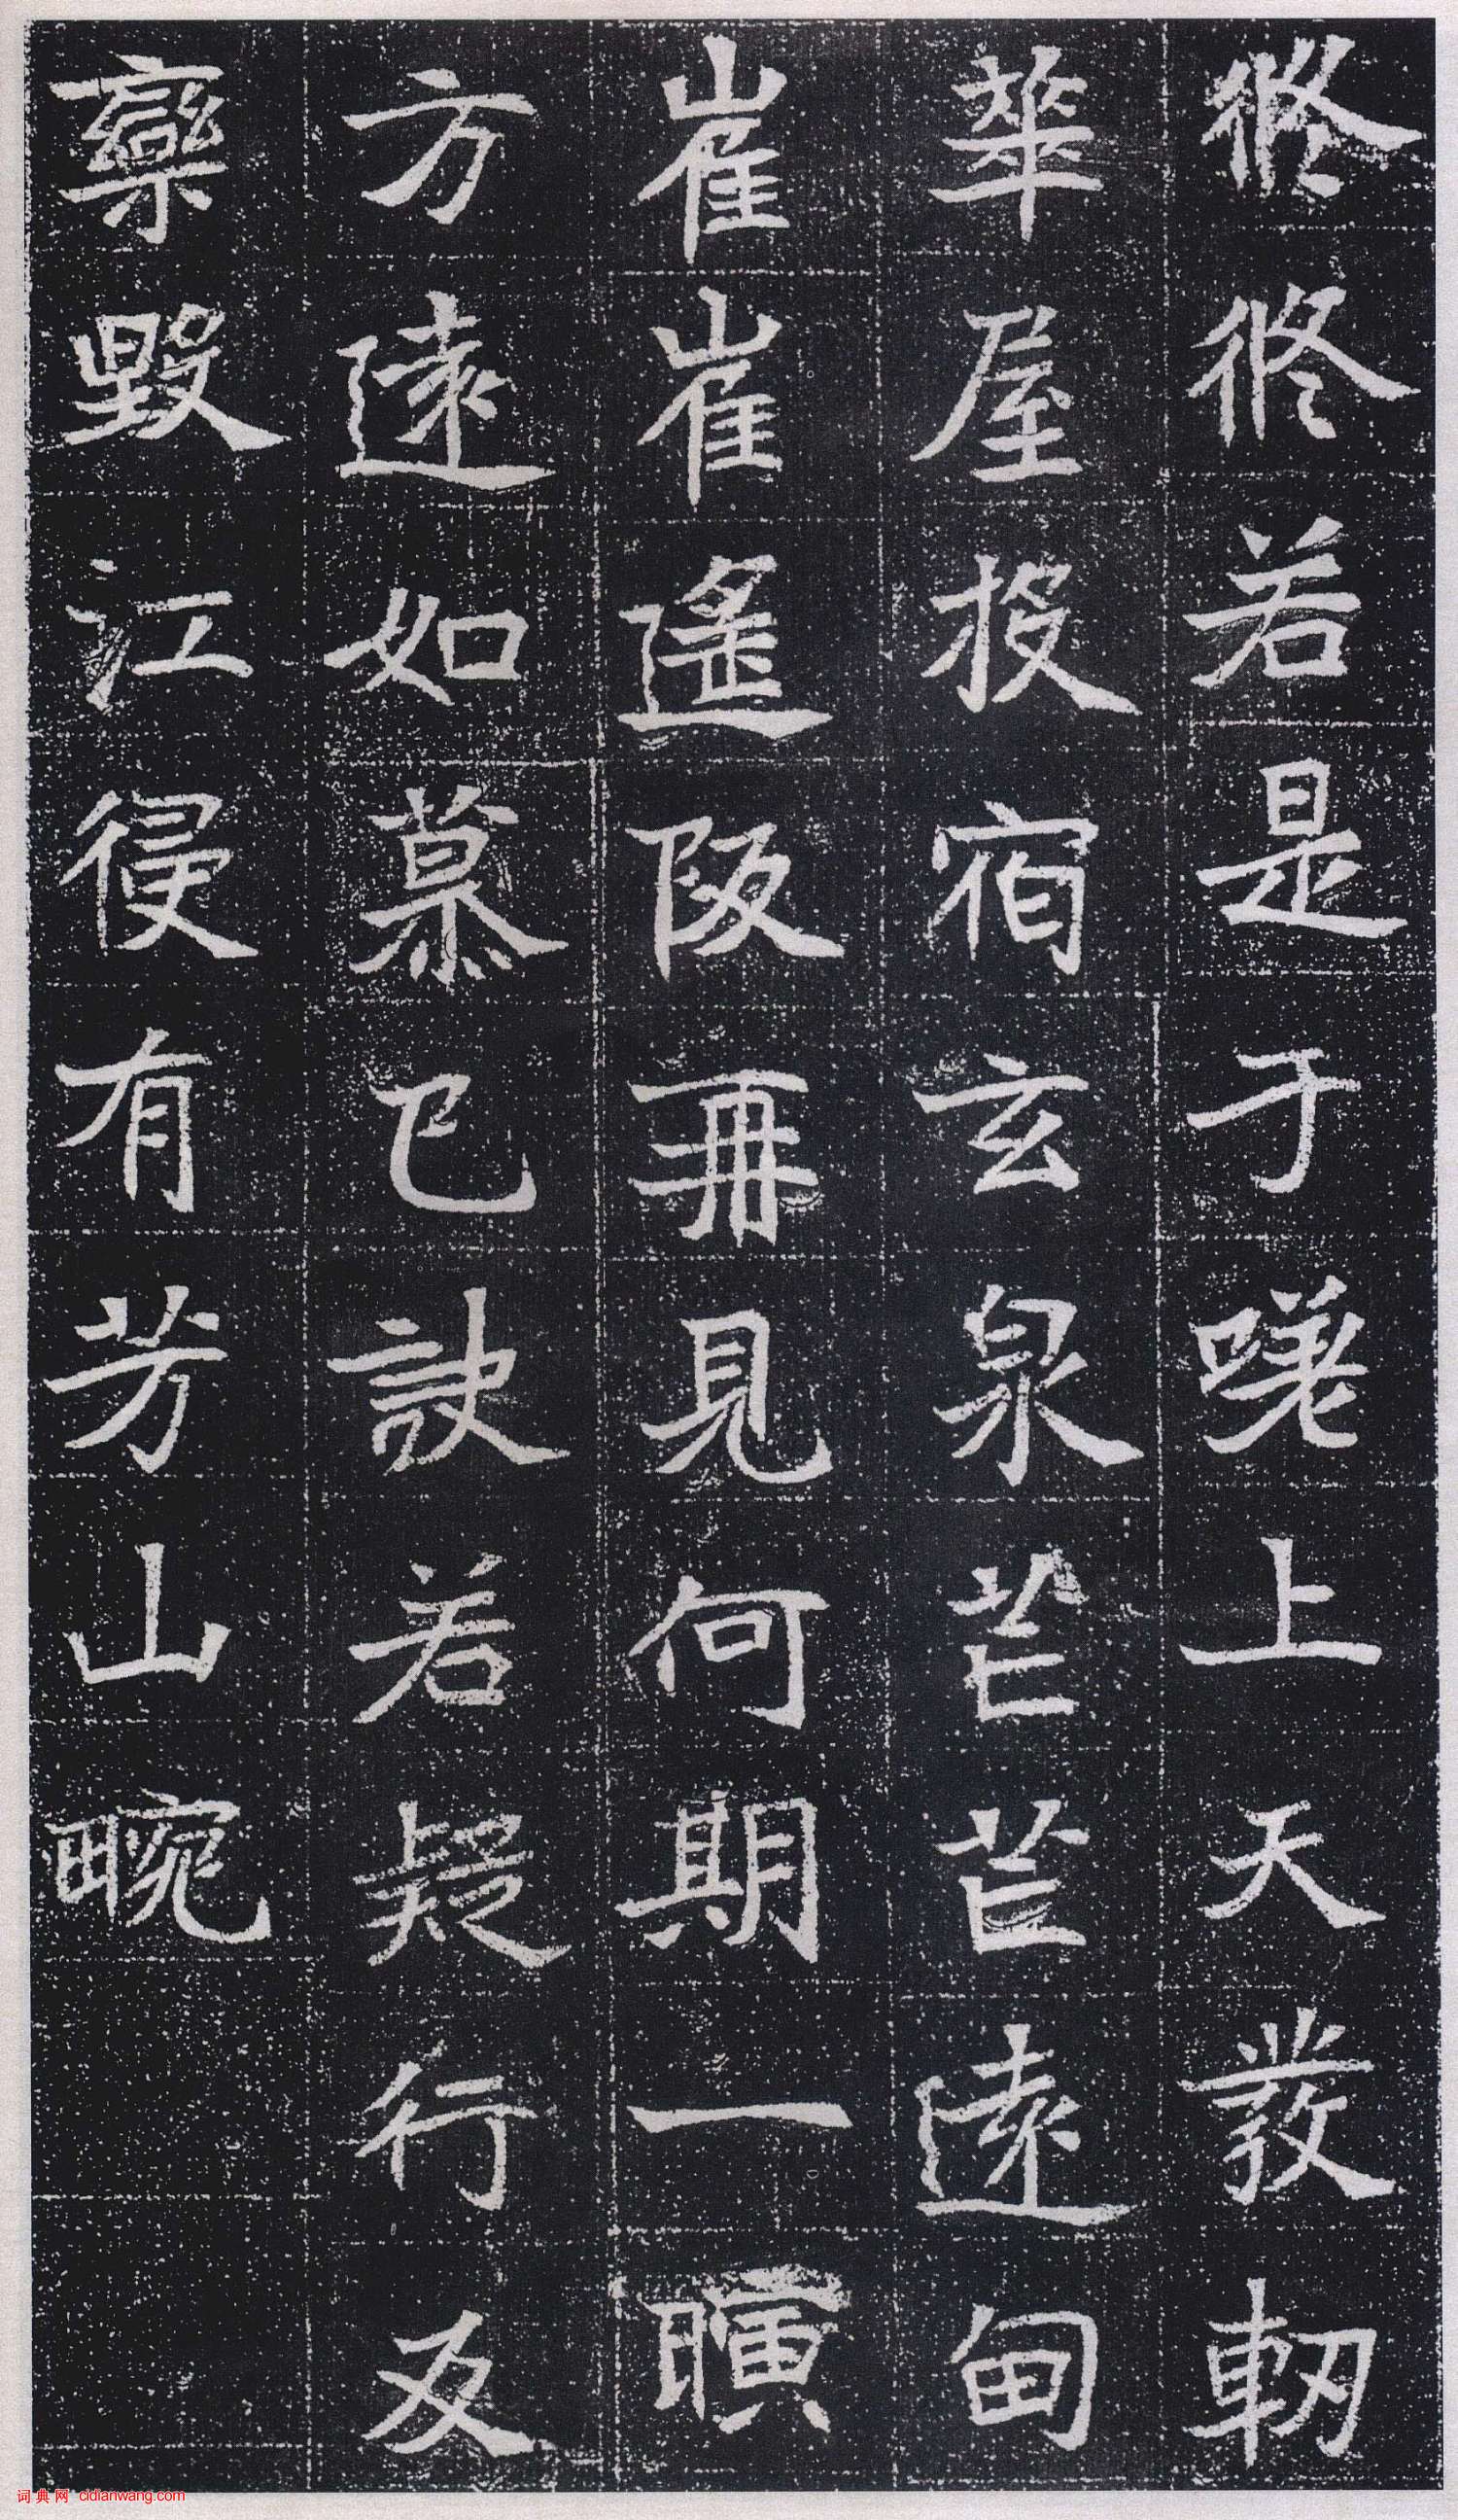 修修若是于嗟上天發軔
華屋投宿玄泉芒芒遠甸
崔崔遙阪再見何期一曠
方遠如慕已訣若疑行反
欒毀江侵有芳山畹
词典网 cidianwang.com